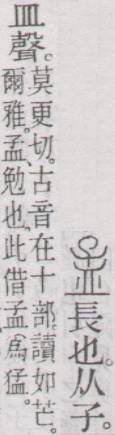 孟長也。从子。
皿聲。
莫更切。古音在十部。讀如芒。
爾雅。孟、勉也。此借孟爲猛。